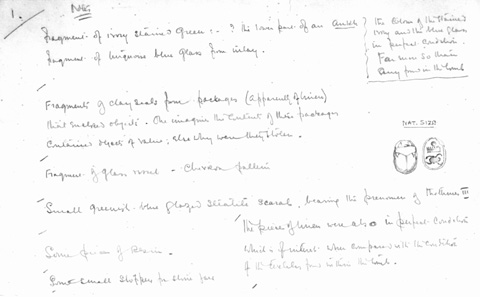 1.
Fragment of ivory stained Green :- ? the lower part of an
Fragment of lignous blue Glass from inlay.
the colour of the stained
ivory and the blue glass
in perfect condition.
Far more so than
any found in the tomb
Fragments of clay seals from packages (apparently of linen)
that enclosed objects. One imagines the content of these packages
contained objects of value, else why were they stolen.
NAT. SIZE
Fragment of glass vessel - Chevron pattern
Small greenish-blue glazed steatite scarab, bearing the prenomen of Thothmes III
The pieces of linen were also in perfect condition
which is evident when compared with the condition
of the textiles found within the tomb.
Some pieces of Resin.
Some small stoppers for stone jars